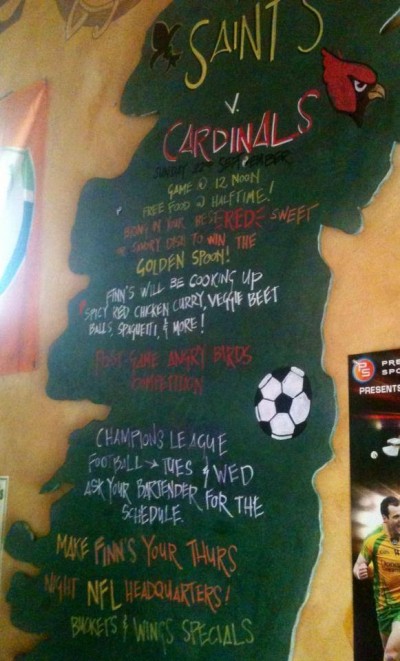 SAINTS
V.
CARDINALS
SUNDAY 22 SEPTEMBER
GAME @ 12 NOON
FREE FOOD @ HALFTIME!
BRING IN YOUR BEST RED SWEET
OR SAVORY DISH TO WIN THE
GOLDEN SPOON!
FINN'S WILL BE COOKING UP
SPICY RED CHICKEN CURRY, VEGGIE BEET
BALLS, SPAGHETTI, & MORE!
POST-GAME ANGRY BIRDS
COMPETITION
CHAMPIONS LEAGUE
FOOTBALL → TUES & WED
ASK YOUR BARTENDER FOR THE
SCHEDULE.
MAKE FINN'S YOUR THURS
NIGHT NFL HEADQUARTERS!
BUCKETS & WINGS SPECIALS
PS PRE
SPO
PRESENTE